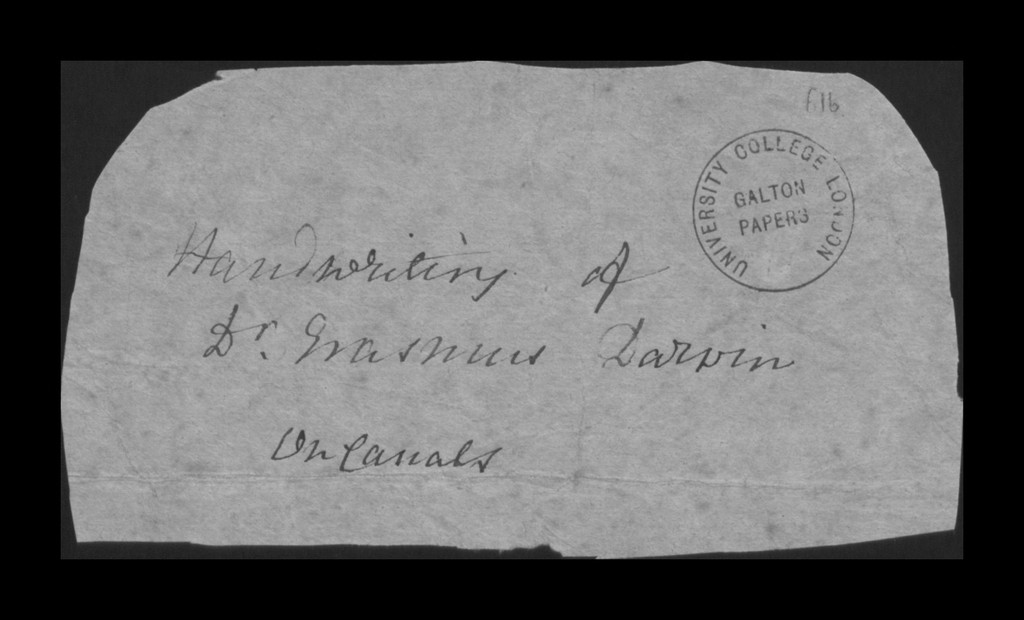 f.16
UNIVERSITY COLLEGE LONDON
GALTON
PAPERS
Handwriting of
Dr. Erasmus Darwin
On Canals